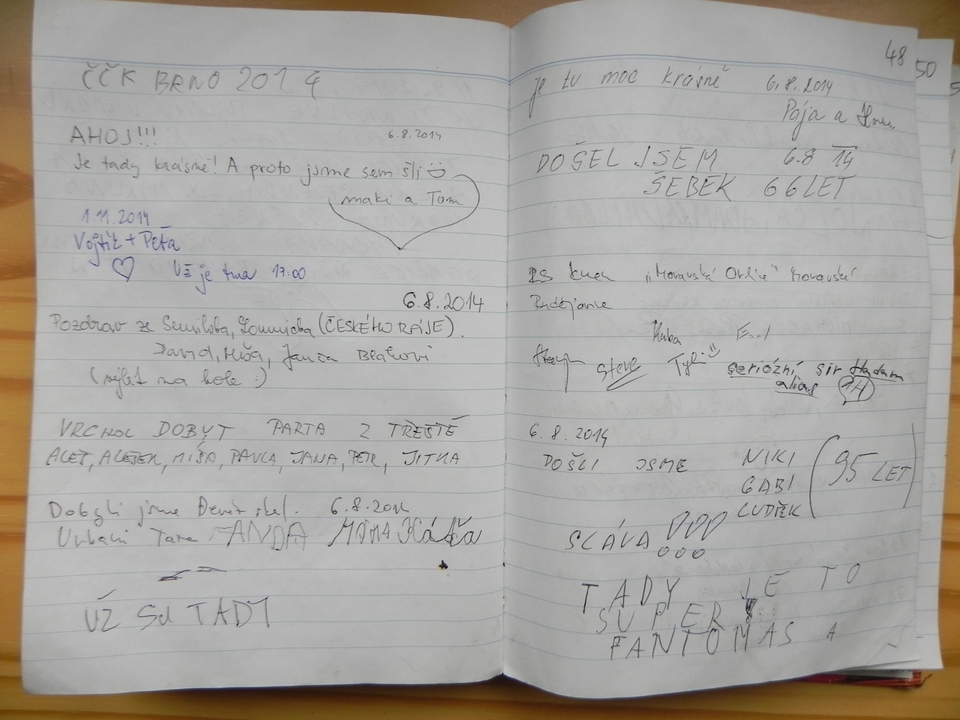 ČČK BRNO 2014
AHOJ!!! 6.8.2014
Je tady krásně! A proto jsme sem šli
maki a Tom
1.11.2014
Vojtík + Péťa
Už je tma 17:00
6.8.2014
Pozdrav ze Semil, Lomnicka (ČESKÉHO RÁJE).
David, Míša, Janča
(výlet na kole :)
VRCHOL DOBYT PARTA Z TŘEŠTĚ
ALEŠ, MÍŠA, PAVLA, JANA, PETR, JITKA
Dobyli jsme Devět skal. 6.8.2014
Urbani Tara FANDA MAMA Káča
UŽ SU TADY
48
50
je tu moc krásně 6.8.2014
Pája a
DOŠEL JSEM 6.8 14
ŠEBEK 66 LET
"Moravská Orlice" Moravské
Kuba
Steve Tyli
seriózní sir
alias
6.8.2014
DOŠLI JSME NIKI
GABI
LUDĚK
(95 LET)
SLÁVA
TADY JE TO
SUPER
FANTOMAS A